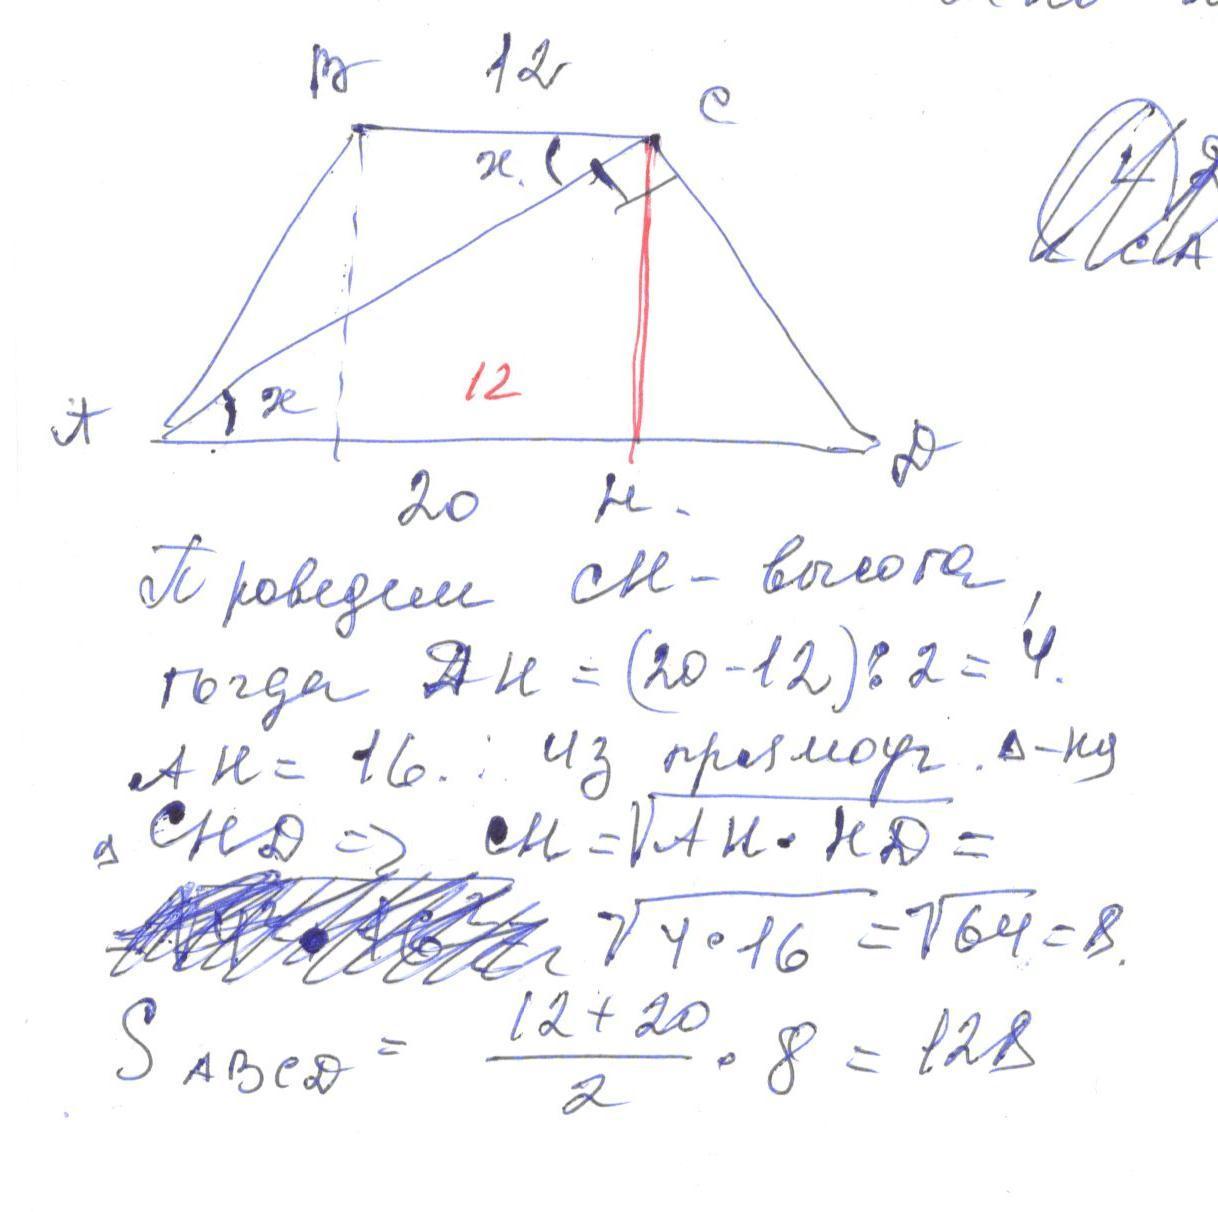 B 12 C
x
12
x
A
D
20 H.
Проведем CH - высота,
тогда ДH = (20-12):2=4.
AH = 16. : Из прямоуг. Δ-ка
Δ CHD => CH = √AH·HD =
√4·16 = √64 = 8.
S ABCD = 12+20 / 2 · 8 = 128